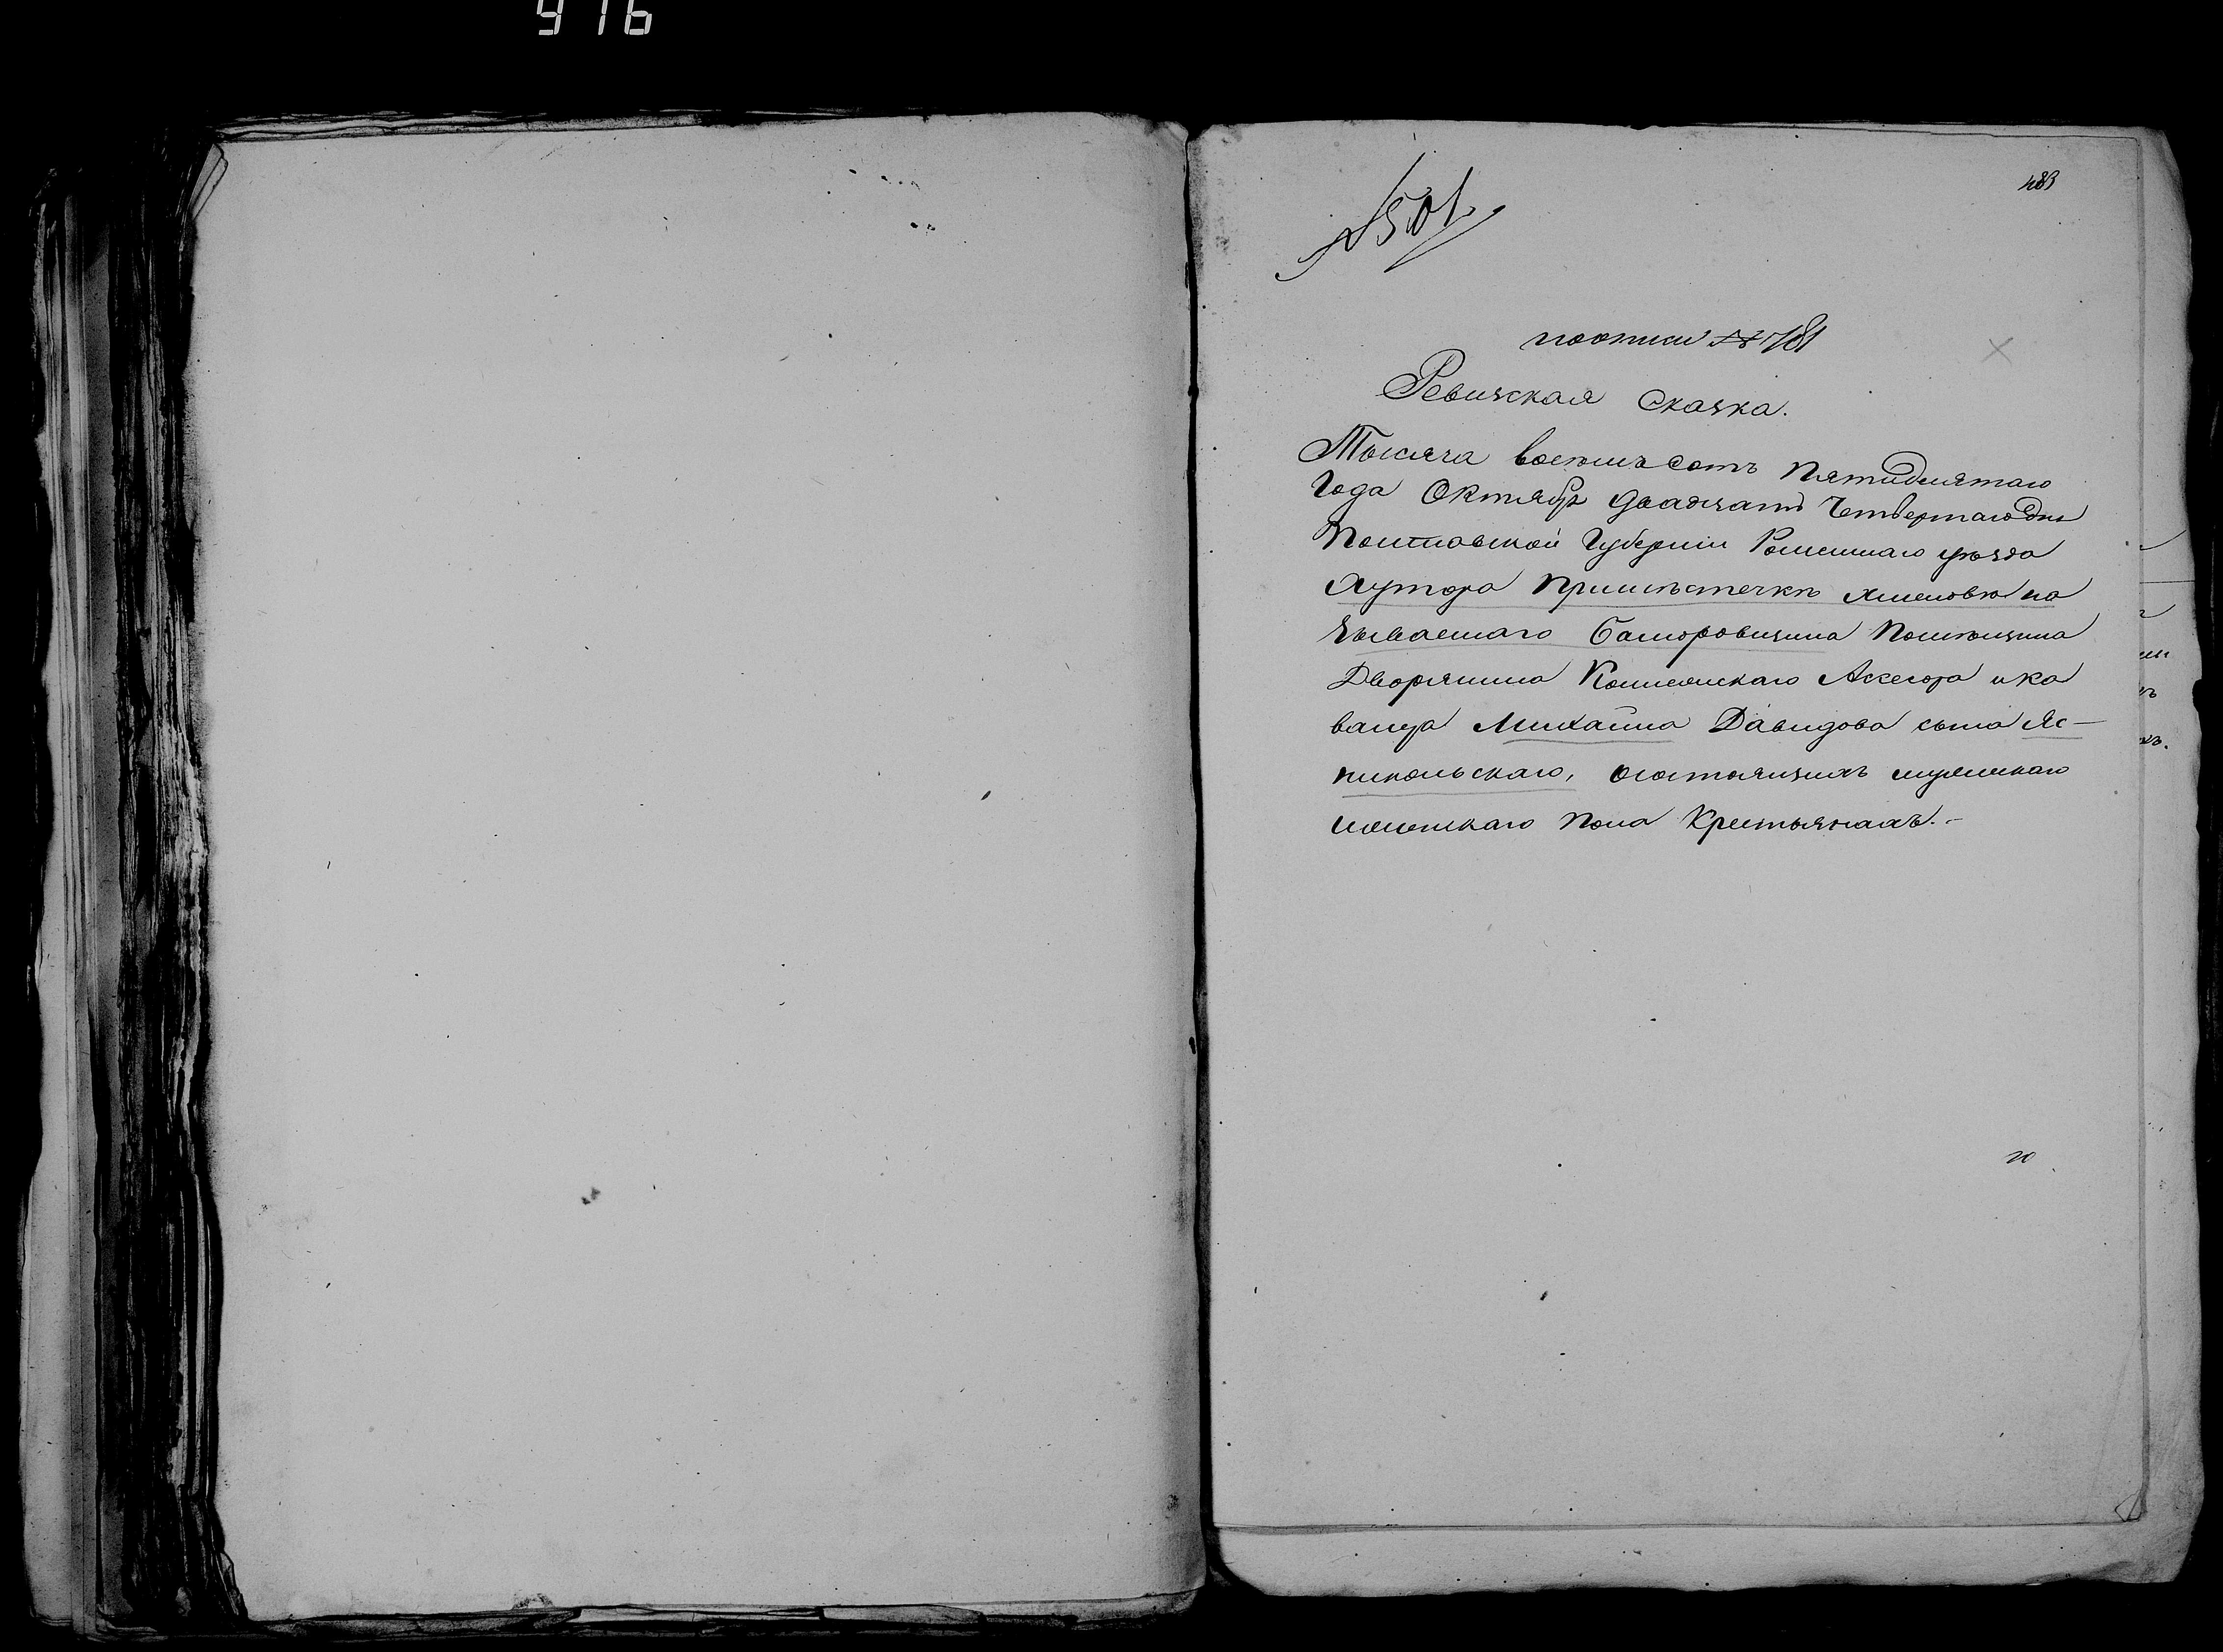 916
483
1501
по описи № 781
Ревизская Сказка.
Тысяча восемь сотъ Пятидесятаго
Года Октября двадцать Четвертаго дня
Полтавской Губерніи Роменнаго уѣзда
Хутора При мѣстечкѣ Хмеловѣ на
зываемаго Помѣщика
Дворянина Коллежскаго Ассесора и ка
валера Михайла Давидова сына Яс-
нопольскаго, о состоящихъ мужескаго
и женскаго пола Крестьянахъ.-